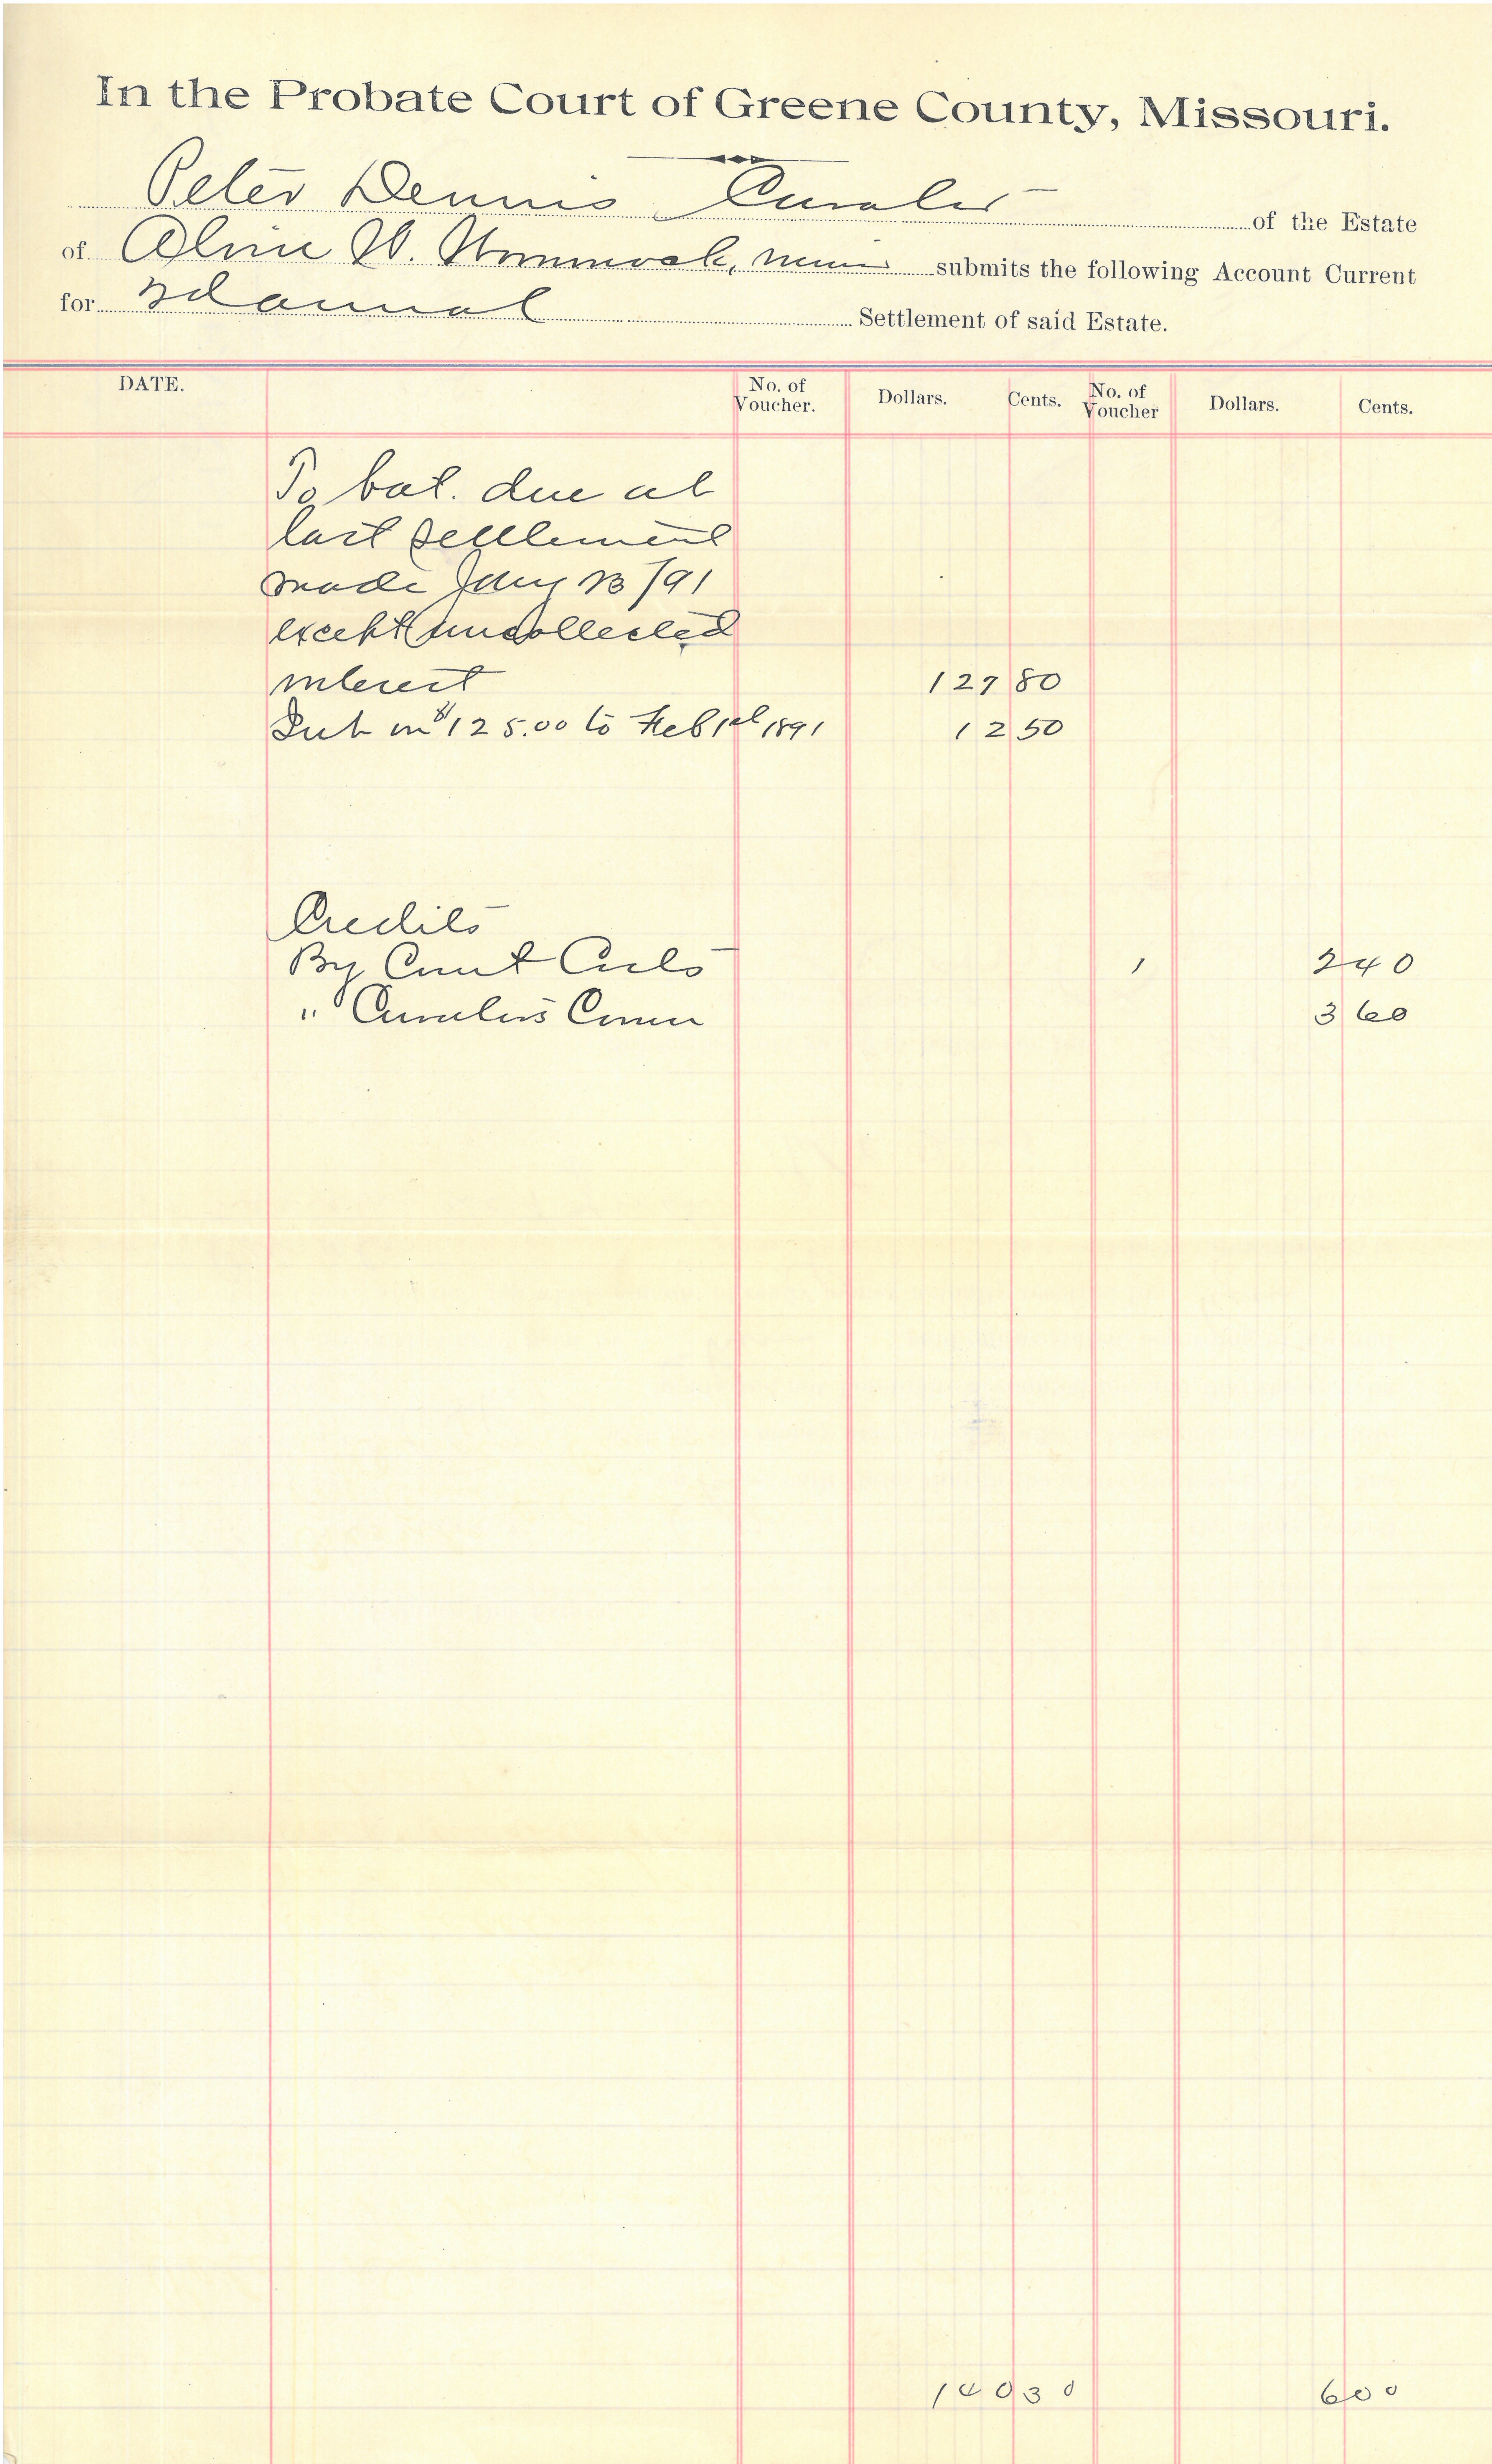 In the Probate Court of Greene County, Missouri.
Peter Dennis Curator of the Estate
of W. minor submits the following Account Current
for 3d annual Settlement of said Estate.
DATE. No. of Voucher. Dollars. Cents. No. of Voucher Dollars. Cents.
To bal. due at
last settlement
made Jany 13/91
except uncollected
interest 127 80
Int on $125.00 to Feb 1st 1891 12 50
Credits
By Court Costs 1 2 40
" Curators Comm 3 60
140 30 6 00